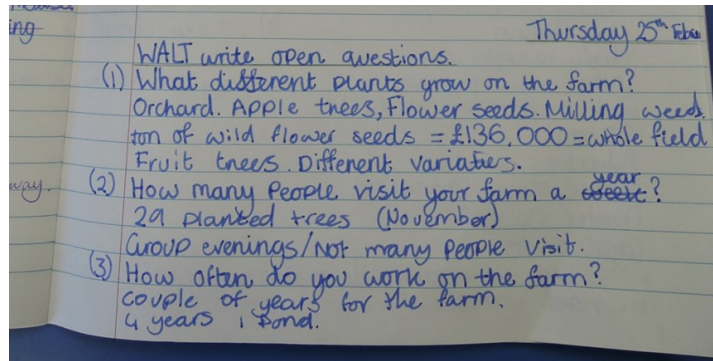 ing
Thursday 25th Feb
WALT write open questions.
(1) What different plants grow on the farm?
Orchard. Apple trees, Flower seeds. Milling weeds.
ton of wild flower seeds = £136,000 = whole field
Fruit trees. Different variaties.
way.
(2) How many people visit your farm a year?
29 planted trees (November)
Group evenings/Not many people visit.
(3) How often do you work on the farm?
couple of years for the farm.
4 years 1 Pond.